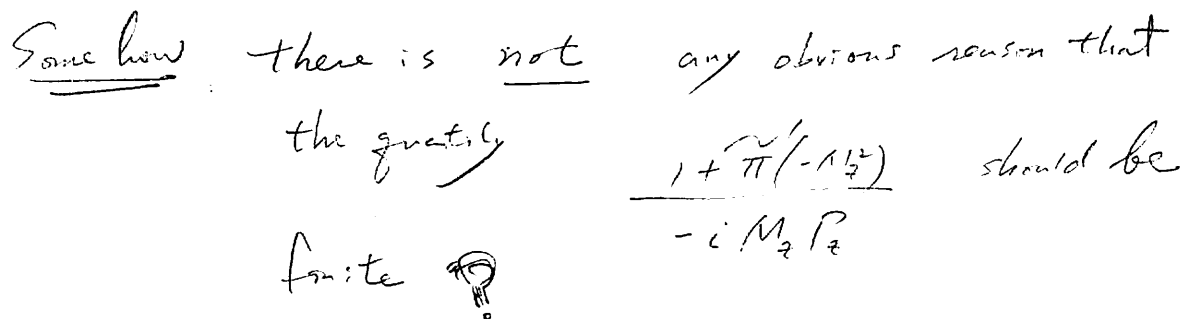 Somehow there is not any obvious reason that
the quantity (1 + π̃'(-M_z²)) / (-i M_z Γ_z) should be
finite ?